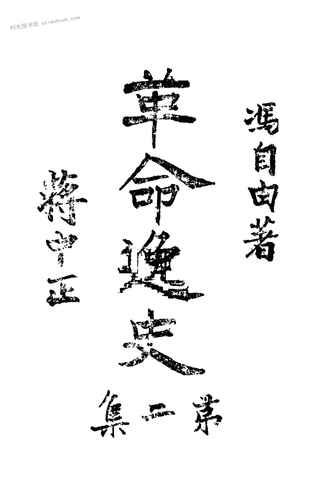 馮自由著
革命逸史
第二集
蔣中正